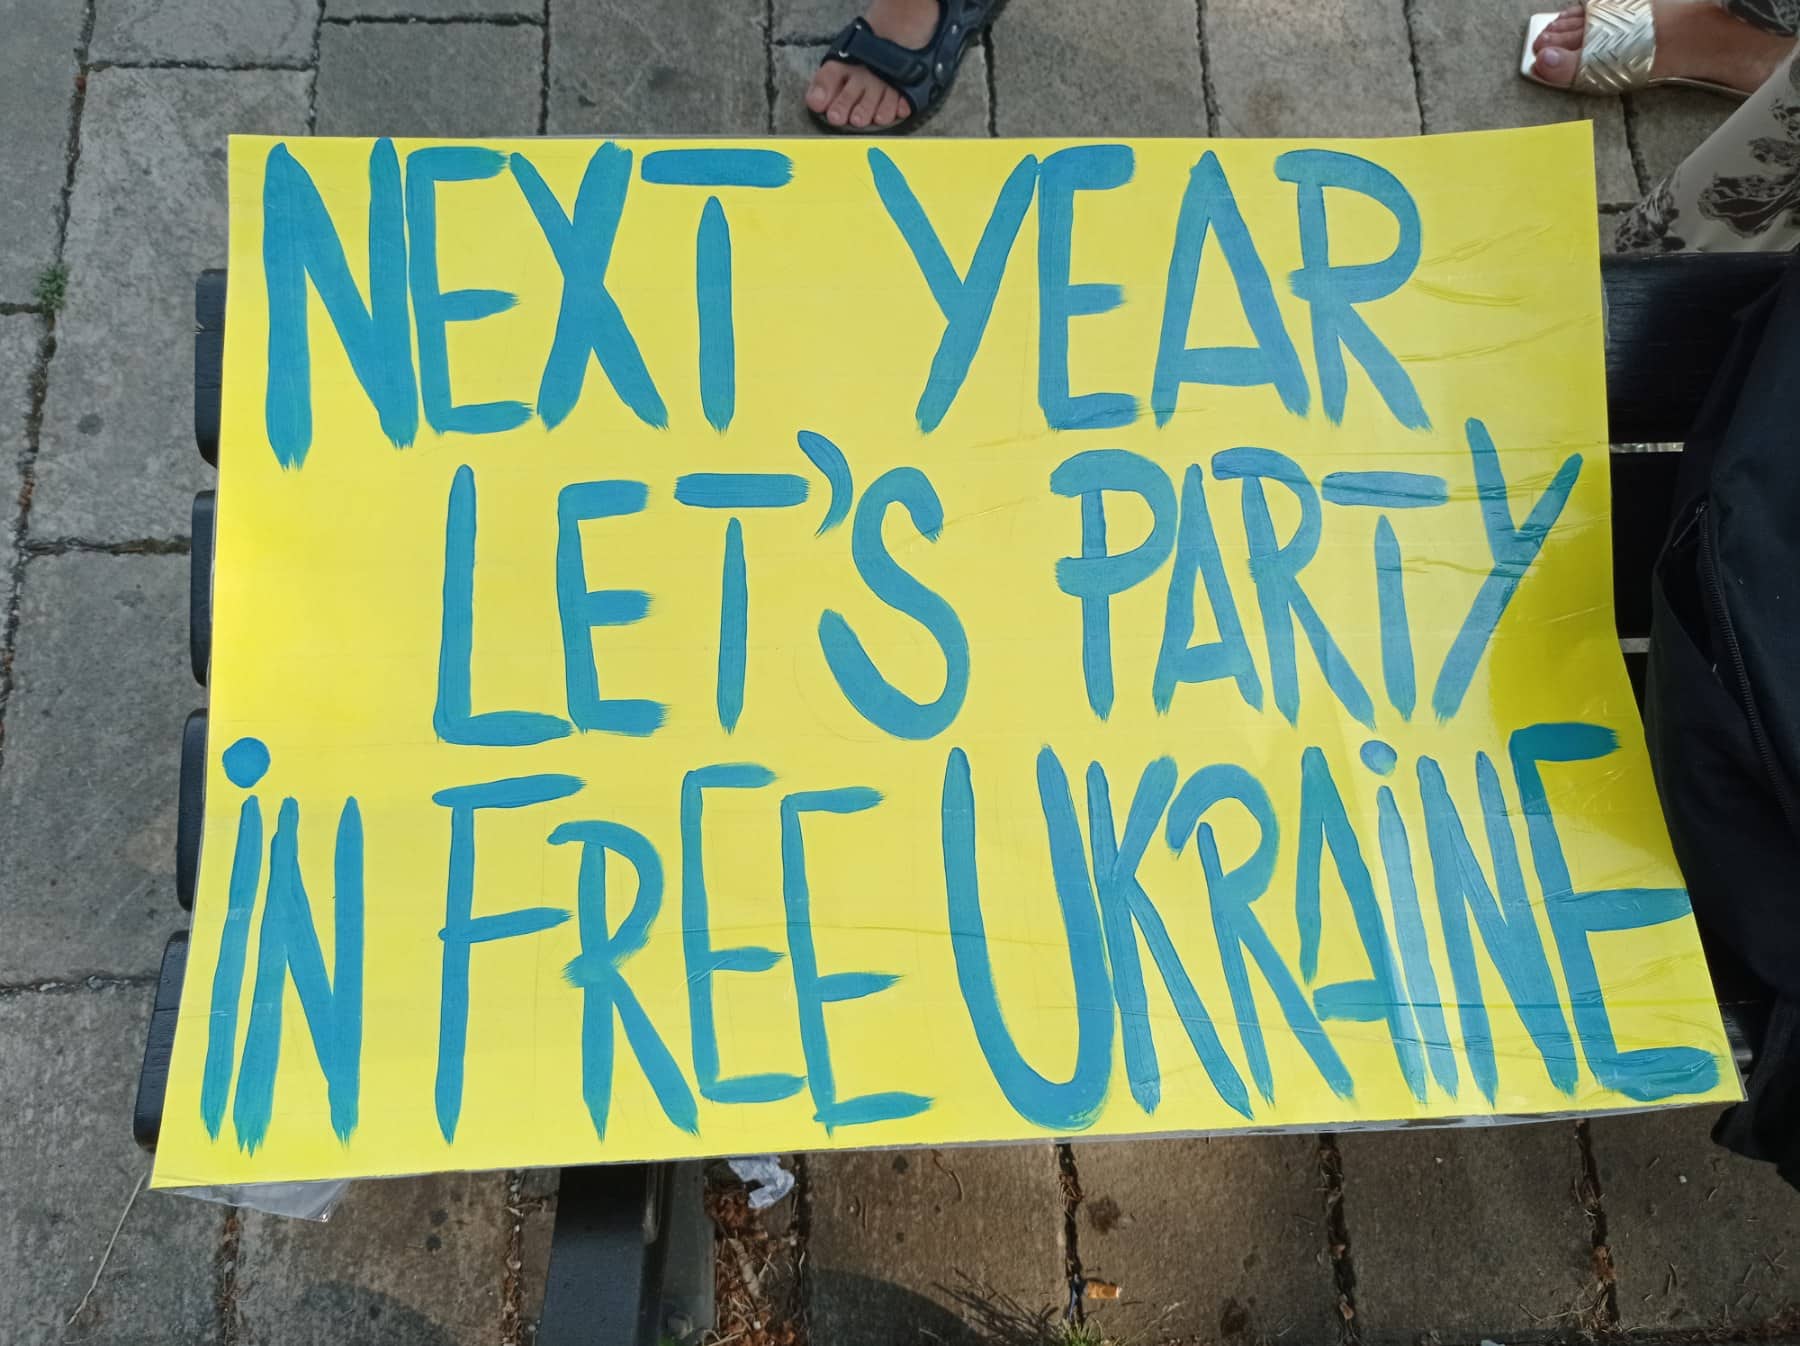 NEXT YEAR
LET'S PARTY
iN FREE UKRAiNE